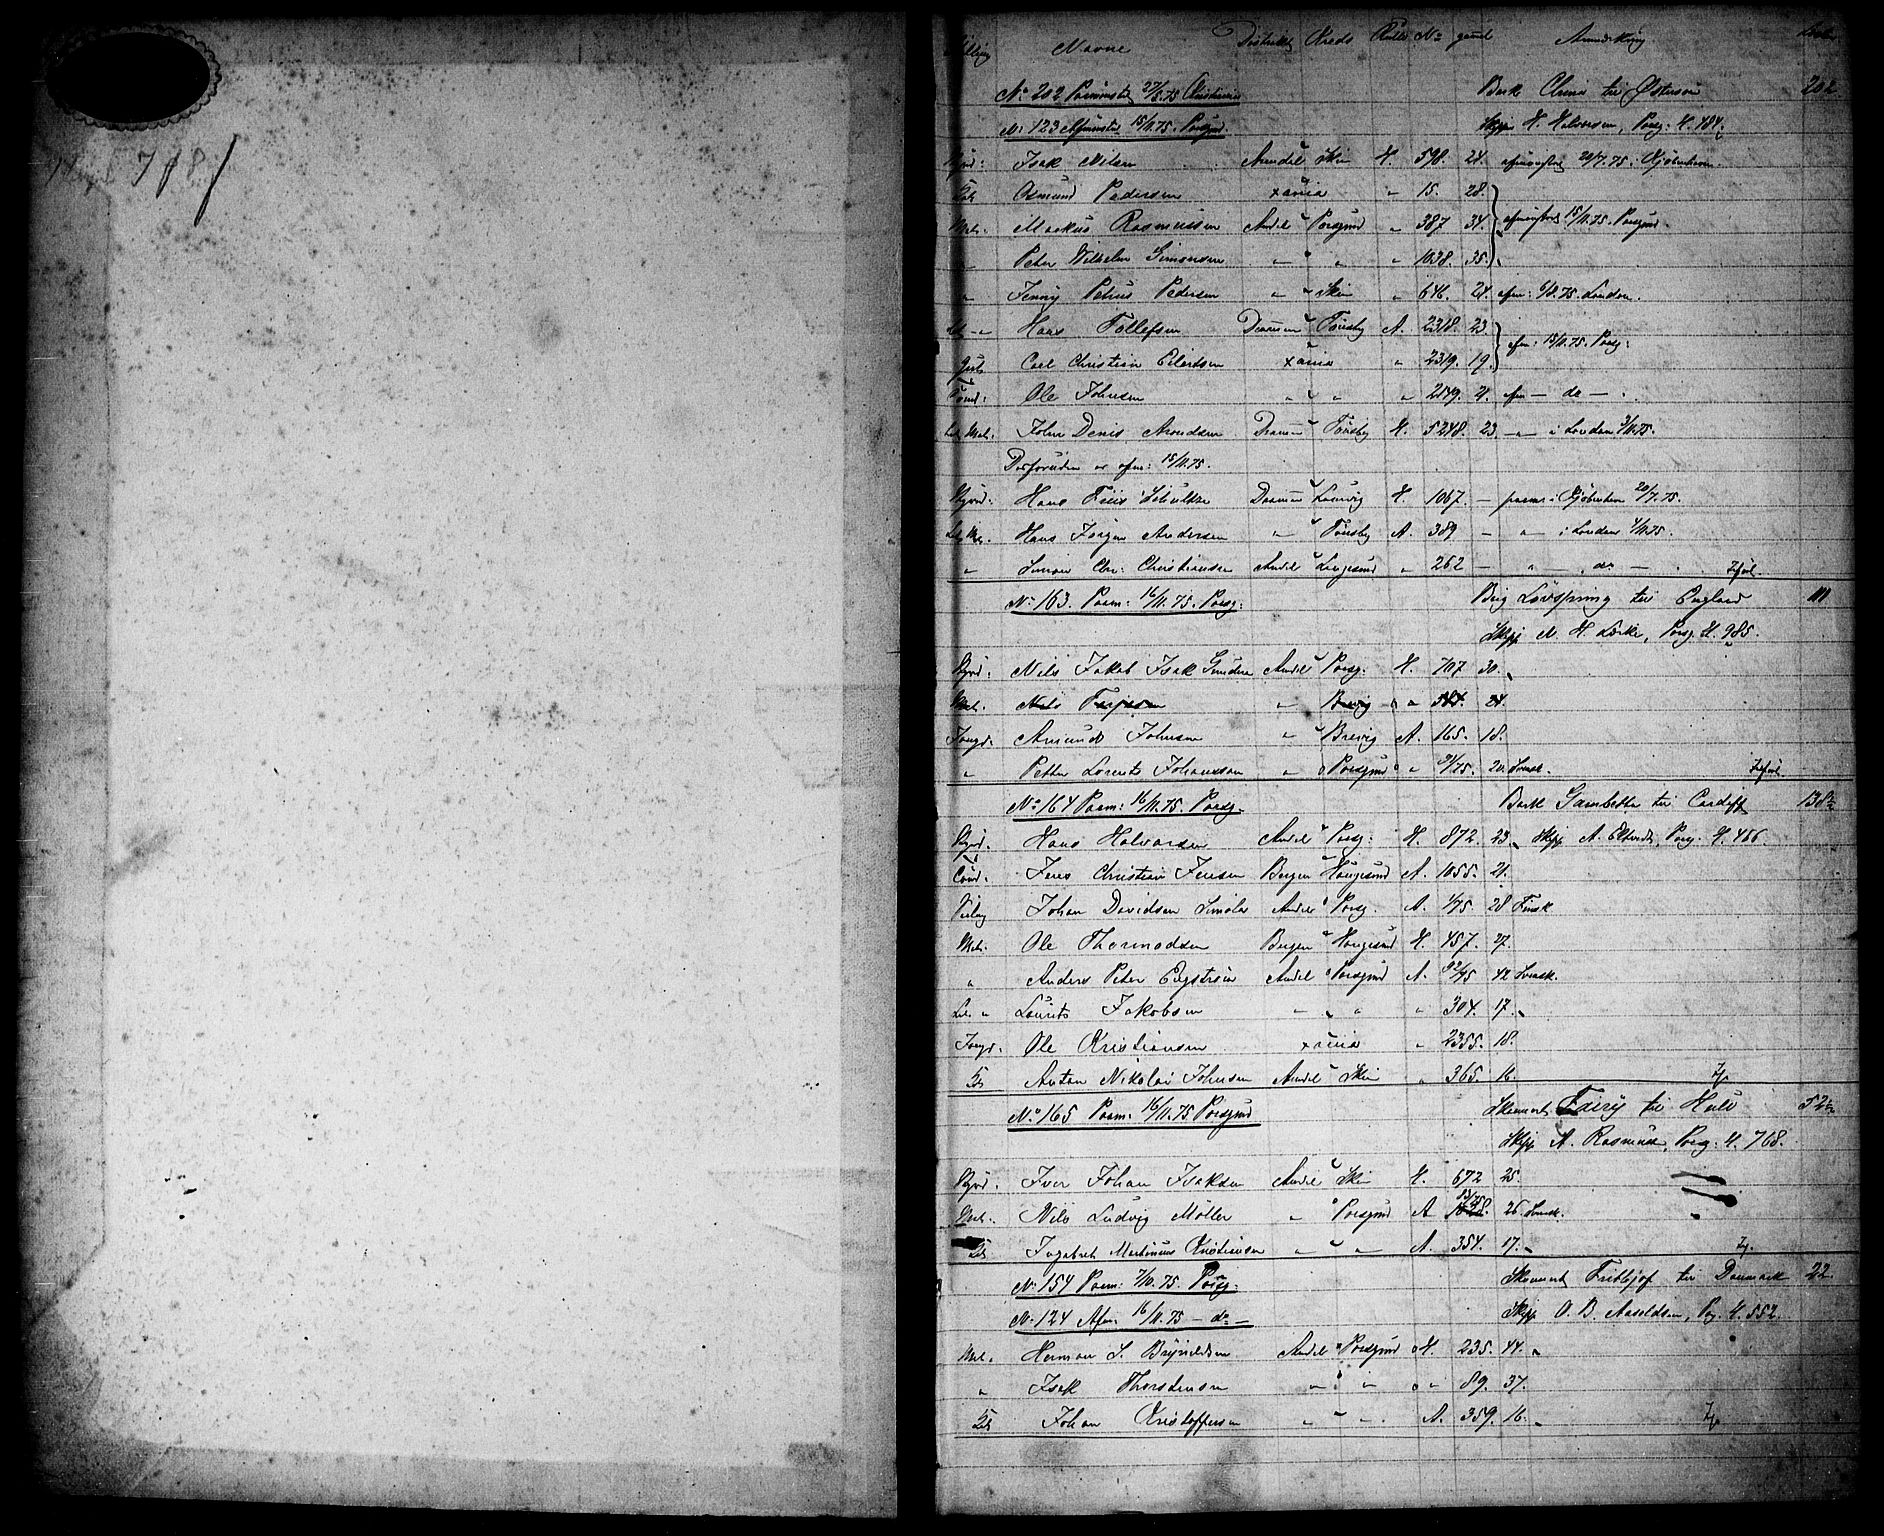 718
Stilling Navne Distrikt Kreds Rulle No gaml Anmærkning Læster
No 202 Paamönstr 27/5.75 Kristiania Bark China til Østersøen 202
No 123 Afmönstr 15/11.75. Porsgrund Skipp H. Halvorsen, Porsg: H. 484.
Styrm: Isak Nilsen Arendal Skien H. 598. 24. afmönstret 20/7.75. i Kjöbenhavn.
Osmund Pedersen Xania " 15. 28.
Mat. Markus Rasmussen Arndl Porsgrund " 387 34. afmönstret 15/11.75. Porsgrund.
" Peter Wilhelm Simonsen " " " 1038. 35.
" Jenny Petrus Pedersen " Skien " 646. 24. afm: 6/11.75. London.
Let. " Hans Tollefsen Drammen Tönsby A. 2318. 23.
Carl Christian Eilertsen Xania " 2319. 19. afm: 15/11.75. Porsg:
Tömd: Ole Johnsen " " " 2549. 21. afm — do — .
Let. Mat. John Denis Arendsen Drammen Tönsby H. 5248. 23. — " — i London 3/11.75.
Desforuden er afm: 15/11.75.
Styrmd. Hans Friis Schultze Drammen Laurvig H. 1067. — paam: i Kjöbenhavn 20/7.75.
Let. Mat. Hans Jörgen Andersen " Tönsby A. 389 — " — i London 4/11.75.
" Simon Chr: Christiansen Arndl Langesund " 262 — " — do — .
No 163. Paam: 16/11.75. Porsg. Brig Lövspring til England 111
Skipp M. H. Lirke, Porsg. H. 985.
Styrmd. Nils Jakob Isak Gundersen Arndl Porsg. H. 707 30.
Mat. Nils Terjesen " Brevig " 384. 24.
Jungm. Amund Johnsen " Brevig A. 165. 18.
" Petter Lorents Johansson " Porsgrund " 91/75. 20. Svensk.
No 164 Paam: 16/11.75. Porsg. Bark Gambetta til Cardiff 138½
Styrmd. Hans Halvorsen Arndl Porsg. H. 872. 23. Skipp A. Eltvedt, Porsg. H. 466.
Tömd. Jens Christian Jensen Bergen Haugesund A. 1055. 21.
Johan Davidsen Simola Arndl Porsg. A. 1/75. 28 Finsk
Mat. Ole Thormodsen Bergen Haugesund H. 457. 27.
" Anders Peter Engström Arndl Porsgrund A. 92/75 42 Svensk.
Let. " Laurits Jakobsen " " " 304. 17.
Jungm. Ole Kristiansen Xania " 2355. 18.
Anton Nikolai Johnsen Arndl Skien " 365. 16.
No 165 Paam: 16/11.75 Porsgrund Skonnert Fairy til Hull 52½
Skipp A. Rasmussen, Porsg: H. 768.
Styrmd. Iver Johan Isaksen Arndl Skien H. 672 25.
Mat. Nils Ludvig Möller " Porsgrund A 93/75 26. Svensk.
Ingebret Martinius Kristiansen " " A. 354. 17.
No 154 Paam: 7/10.75. Porsg. Skonnert Frithjof til Danmark 22.
No 124 Afm: 16/11.75 — do — Skipp O. B. Aaseldsen, Porsg. H. 552.
Mat. Herman S. Brynildsen Arndl Porsgrund H. 235. 44.
" Isak Thorstensen " " " 89. 37.
Johan Kristoffersen " " A. 359. 16.